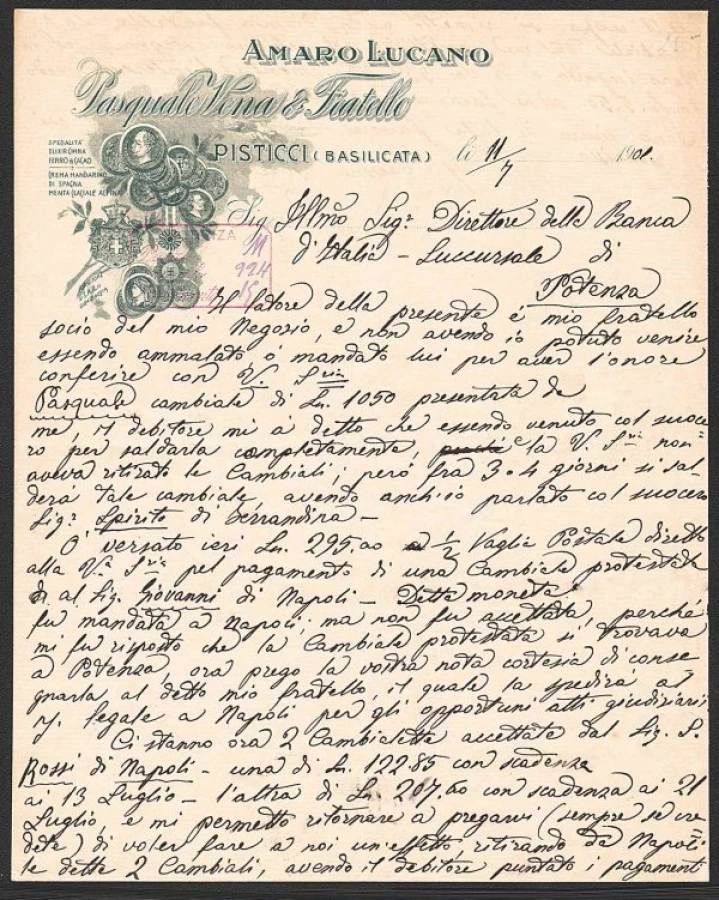 AMARO LUCANO
Pasquale Vena & Fratello
PISTICCI (BASILICATA) li 11/7 1901.
SPECIALITÀ
ELIXIR CHINA
FERRO & CACAO
CREMA MANDARINO
DI SPAGNA
MENTA GLACIALE ALPINA
924
Sig. Illmo Sigr Direttore della Banca
d'Italia - Succursale di
Potenza
Il latore della presente è mio fratello
socio del mio Negozio, e non avendo io potuto venire
essendo ammalato, ò mandato lui per aver l'onore
conferire con V. Sria
Pasquale cambiale di Ln. 1050 presentata da
me, il debitore mi à detto che essendo venuto col suoce
ro per saldarla completamente, e la V. Sria non
aveva ritirato le Cambiali; però fra 3-4 giorni si sal
derà tale cambiale, avendo anch'io parlato col suocero
Sigr Spirito di Ferrandina -
O' versato ieri Ln. 295.00 a 1/2 Vaglia Postale diretto
alla Va Sria pel pagamento di una Cambiale protestata
di al Sig. Giovanni di Napoli - Detta moneta
fu mandata a Napoli; ma non fu accettata, perché
mi fu risposto che la Cambiale protestata si trovava
a Potenza, ora prego la vostra nota cortesia di conse
gnarla al detto mio fratello, il quale la spedirà al
n/. legale a Napoli per gli opportuni atti giudiziarii
Ci stanno ora 2 Cambialette accettate dal Sig. S.
Rossi di Napoli - una di Ln. 122.85 con scadenza
ai 13 Luglio - l'altra di Ln 207.60 con scadenza ai 21
Luglio, e mi permetto ritornare a pregarvi (sempre se cre
dete) di voler fare a noi un effetto, ritirando da Napoli
le dette 2 Cambiali, avendo il debitore puntato i pagamenti